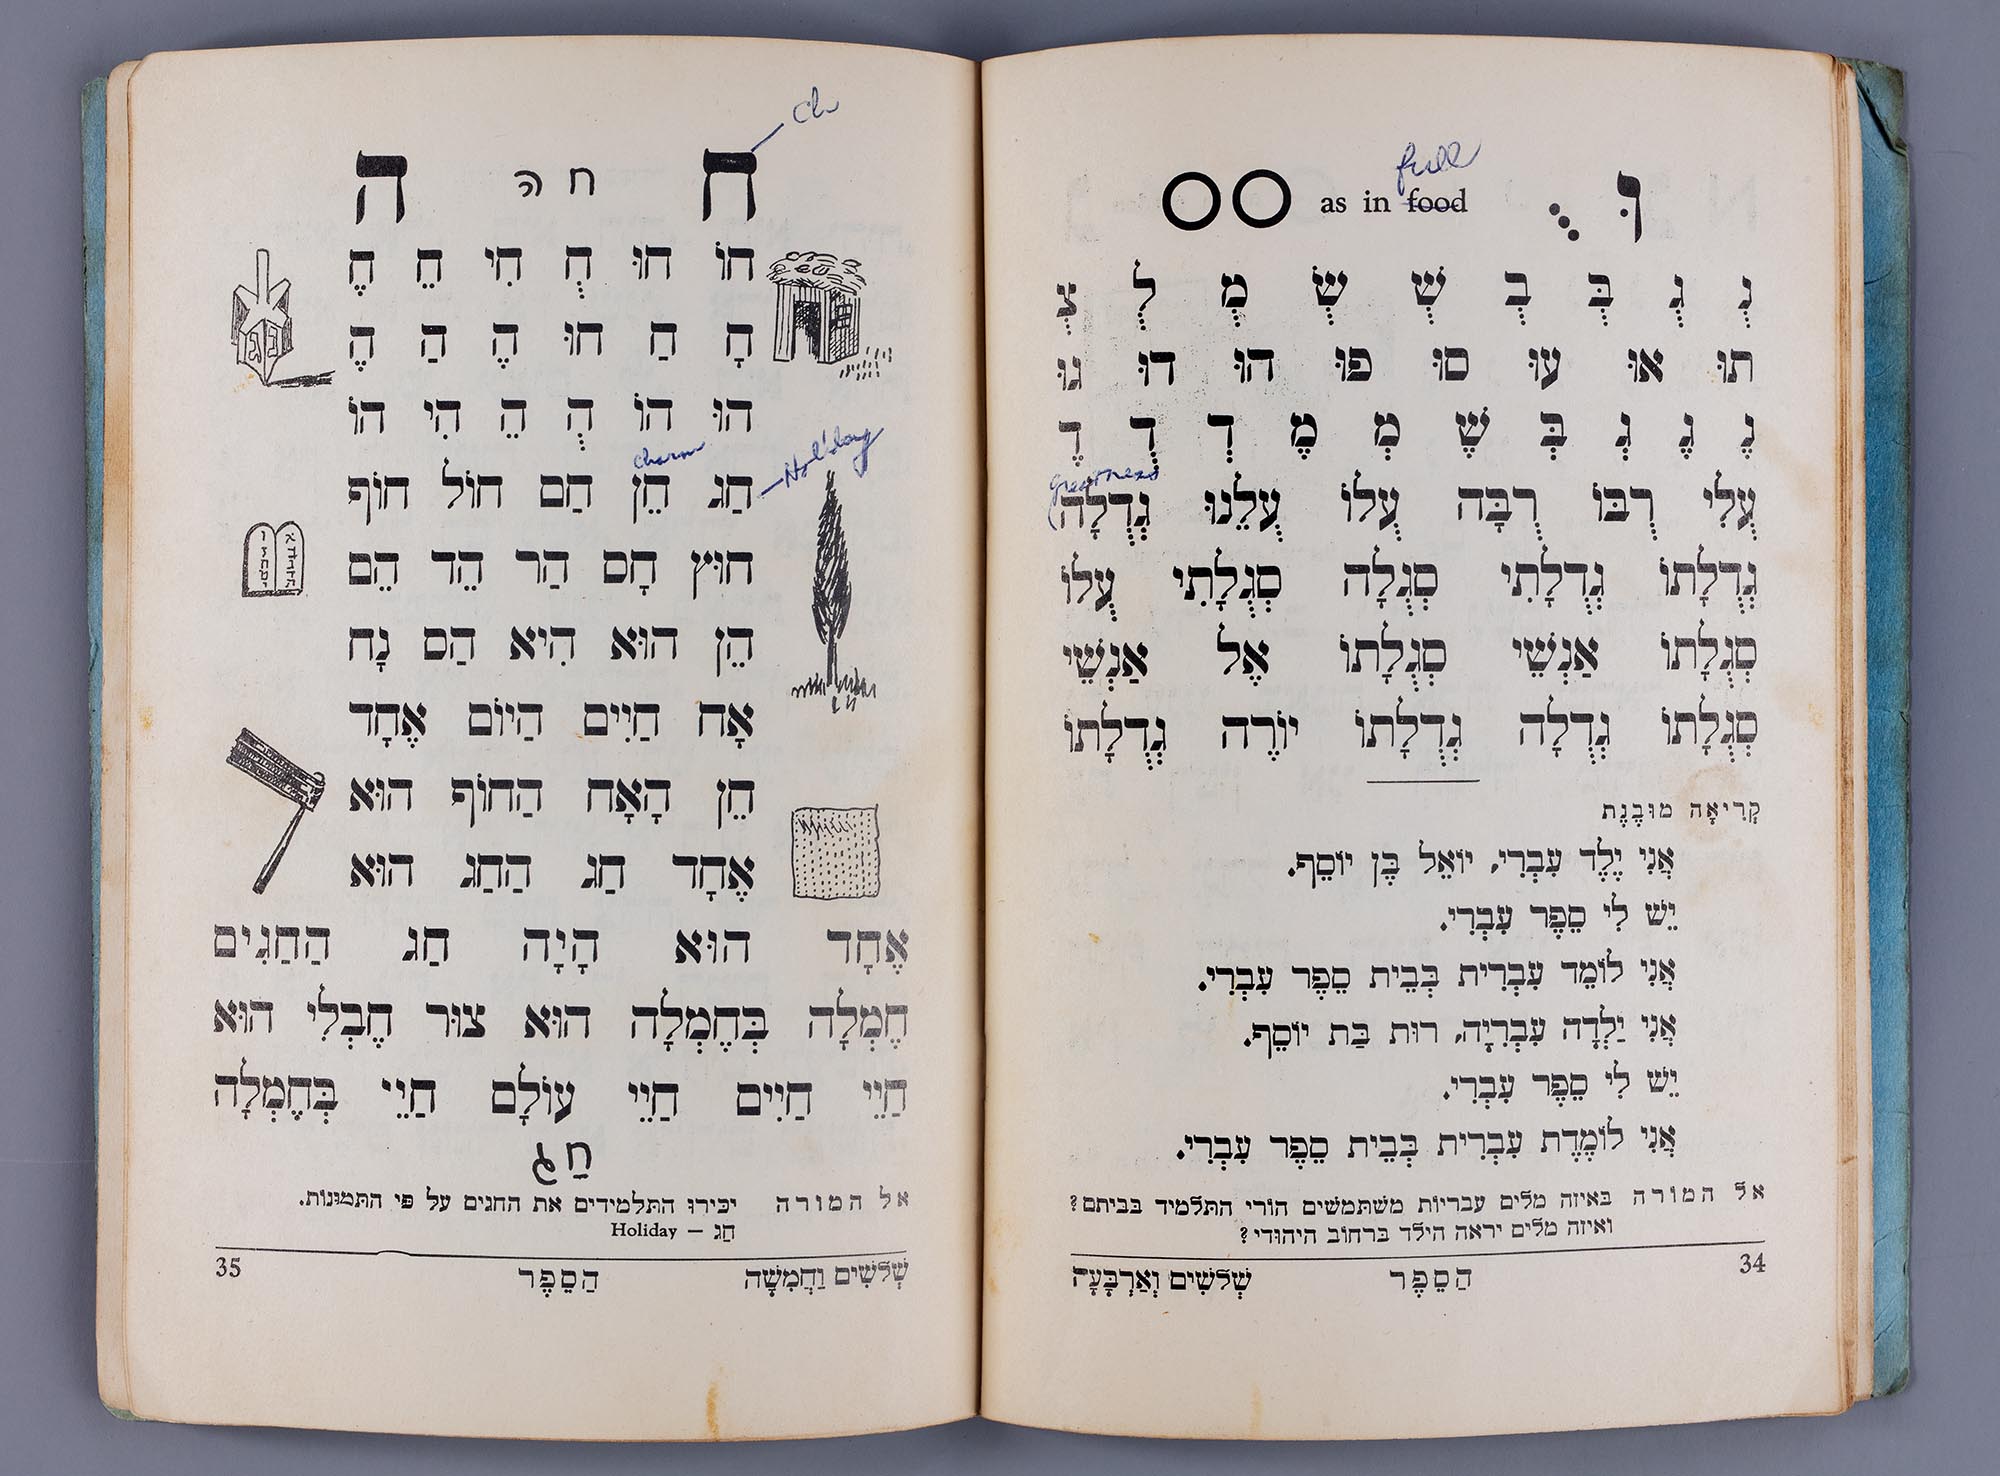 וּ ֻ OO as in food
full
נֻ גֻ בֻּ בֻ שֻׁ שֻׂ מֻ לֻ צֻ
תוּ אוּ עוּ סוּ פוּ הוּ דוּ נוּ
נֶ גֶ גֻ בֻּ שֶׁ מֻ מֶ דֻ דֻ דֶ
greatness
עֻלִי רֻבּוֹ רֻבָּה עֻלוֹ עֻלֵנוּ גְדֻלָה
גְדֻלָתוֹ גְדֻלָתִי סְגֻלָה סְגֻלָתִי עֻלוֹ
סְגֻלָתוֹ אַנְשֵׁי סְגֻלָתוֹ אֶל אַנְשֵׁי
סְגֻלָתוֹ גְדֻלָה גְדֻלָתוֹ יוֹרֶה גְדֻלָתוֹ
קְרִיאָה מוּבֶנֶת
אֲנִי יֶלֶד עִבְרִי, יוֹאֵל בֶּן יוֹסֵף.
יֵשׁ לִי סֵפֶר עִבְרִי.
אֲנִי לוֹמֵד עִבְרִית בְּבֵית סֵפֶר עִבְרִי.
אֲנִי יַלְדָה עִבְרִיָה, רוּת בַּת יוֹסֵף.
יֵשׁ לִי סֵפֶר עִבְרִי.
אֲנִי לוֹמֶדֶת עִבְרִית בְּבֵית סֵפֶר עִבְרִי.
אל המורה באיזה מלים עבריות משתמשים הורי התלמיד בביתם?
ואיזה מלים יראה הילד ברחוב היהודי?
34 הַסֵפֶר שְׁלֹשִׁים וְאַרְבָּעָה
Ch
ח ח ה ה
חוֹ חוּ חֻ חִי חֵ חֶ
חָ חַ חוּ הֶ הַ הֶ
הוּ הוֹ הֻ הֵ הִי הוֹ
charm
Holiday
חַג חֵן חַם חוֹל חוֹף
חוּץ חָס הַר הֵד הֵם
הֵן הוּא הִיא הַס נָח
אָח חַיִים הַיוֹם אֶחָד
חֵן הָאָח הַחוֹף הוּא
אֶחָד חַג הַחַג הוּא
אֶחָד הוּא הָיָה חַג הַחַגִים
חֶמְלָה בְּחֶמְלָה הוּא צוּר חֶבְלִי הוּא
חַיֵי חַיִים חַיֵי עוֹלָם חַיֵי בְּחֶמְלָה
חַג
אל המורה יכירו התלמידים את החגים על פי התמונות.
חַג – Holiday
שְׁלֹשִׁים וַחֲמִשָׁה הַסֵפֶר 35